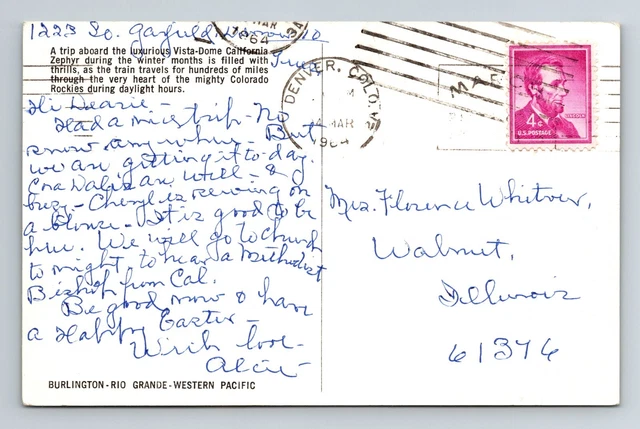 1223 So. Garfield, Denver 10
Tues.
A trip aboard the luxurious Vista-Dome California
Zephyr during the winter months is filled with
thrills, as the train travels for hundreds of miles
through the very heart of the mighty Colorado
Rockies during daylight hours.
Hi Dearie -
Had a nice trip - No
snow anywhere. But
we are getting it to-day.
are well - &
busy - Cheryl is sewing on
a blouse - It is good to be
here. We will go to church
to night to hear a Methodist
Bishop from Cal.
Be good now & have
a Happy Easter -
With love -
Alice -
BURLINGTON - RIO GRANDE - WESTERN PACIFIC
DENVER, COLO.
MAR
1964
4¢
LINCOLN
U.S. POSTAGE
Mrs. Florence Whitver,
Walnut,
Illinois
61376